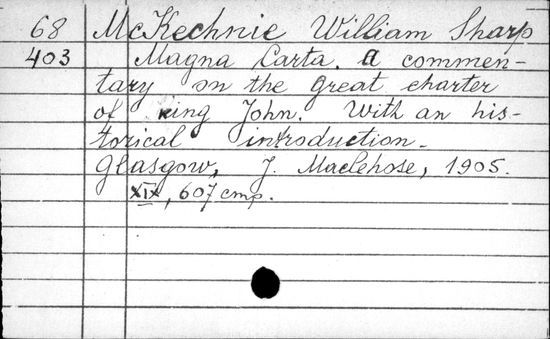 68 McKechnie William Sharp
403 Magna Carta. A commen-
tary on the great charter
of King John. With an his-
torical introduction.
Glasgow, J. Maclehose, 1905.
XIX, 607 стр.